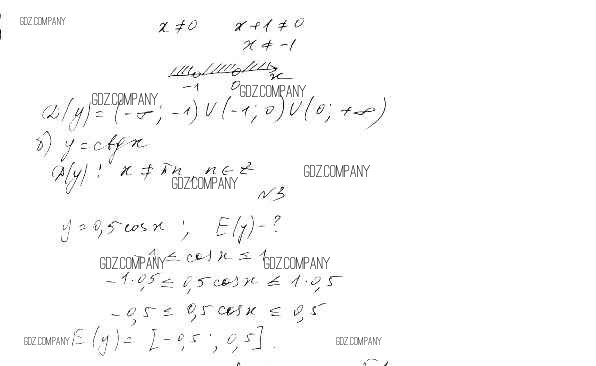 GDZ.COMPANY
x ≠ 0 x + 1 ≠ 0
x ≠ -1
-1 0 x
GDZ.COMPANY GDZ.COMPANY
D(y) = (-∞; -1) ∪ (-1; 0) ∪ (0; +∞)
б) y = ctg x
D(y): x ≠ πn, n ∈ Z
GDZ.COMPANY GDZ.COMPANY
N3
y = 0,5 cos x; E(y) - ?
-1 ≤ cos x ≤ 1
GDZ.COMPANY GDZ.COMPANY
-1·0,5 ≤ 0,5 cos x ≤ 1·0,5
-0,5 ≤ 0,5 cos x ≤ 0,5
GDZ.COMPANY E(y) = [-0,5; 0,5]. GDZ.COMPANY